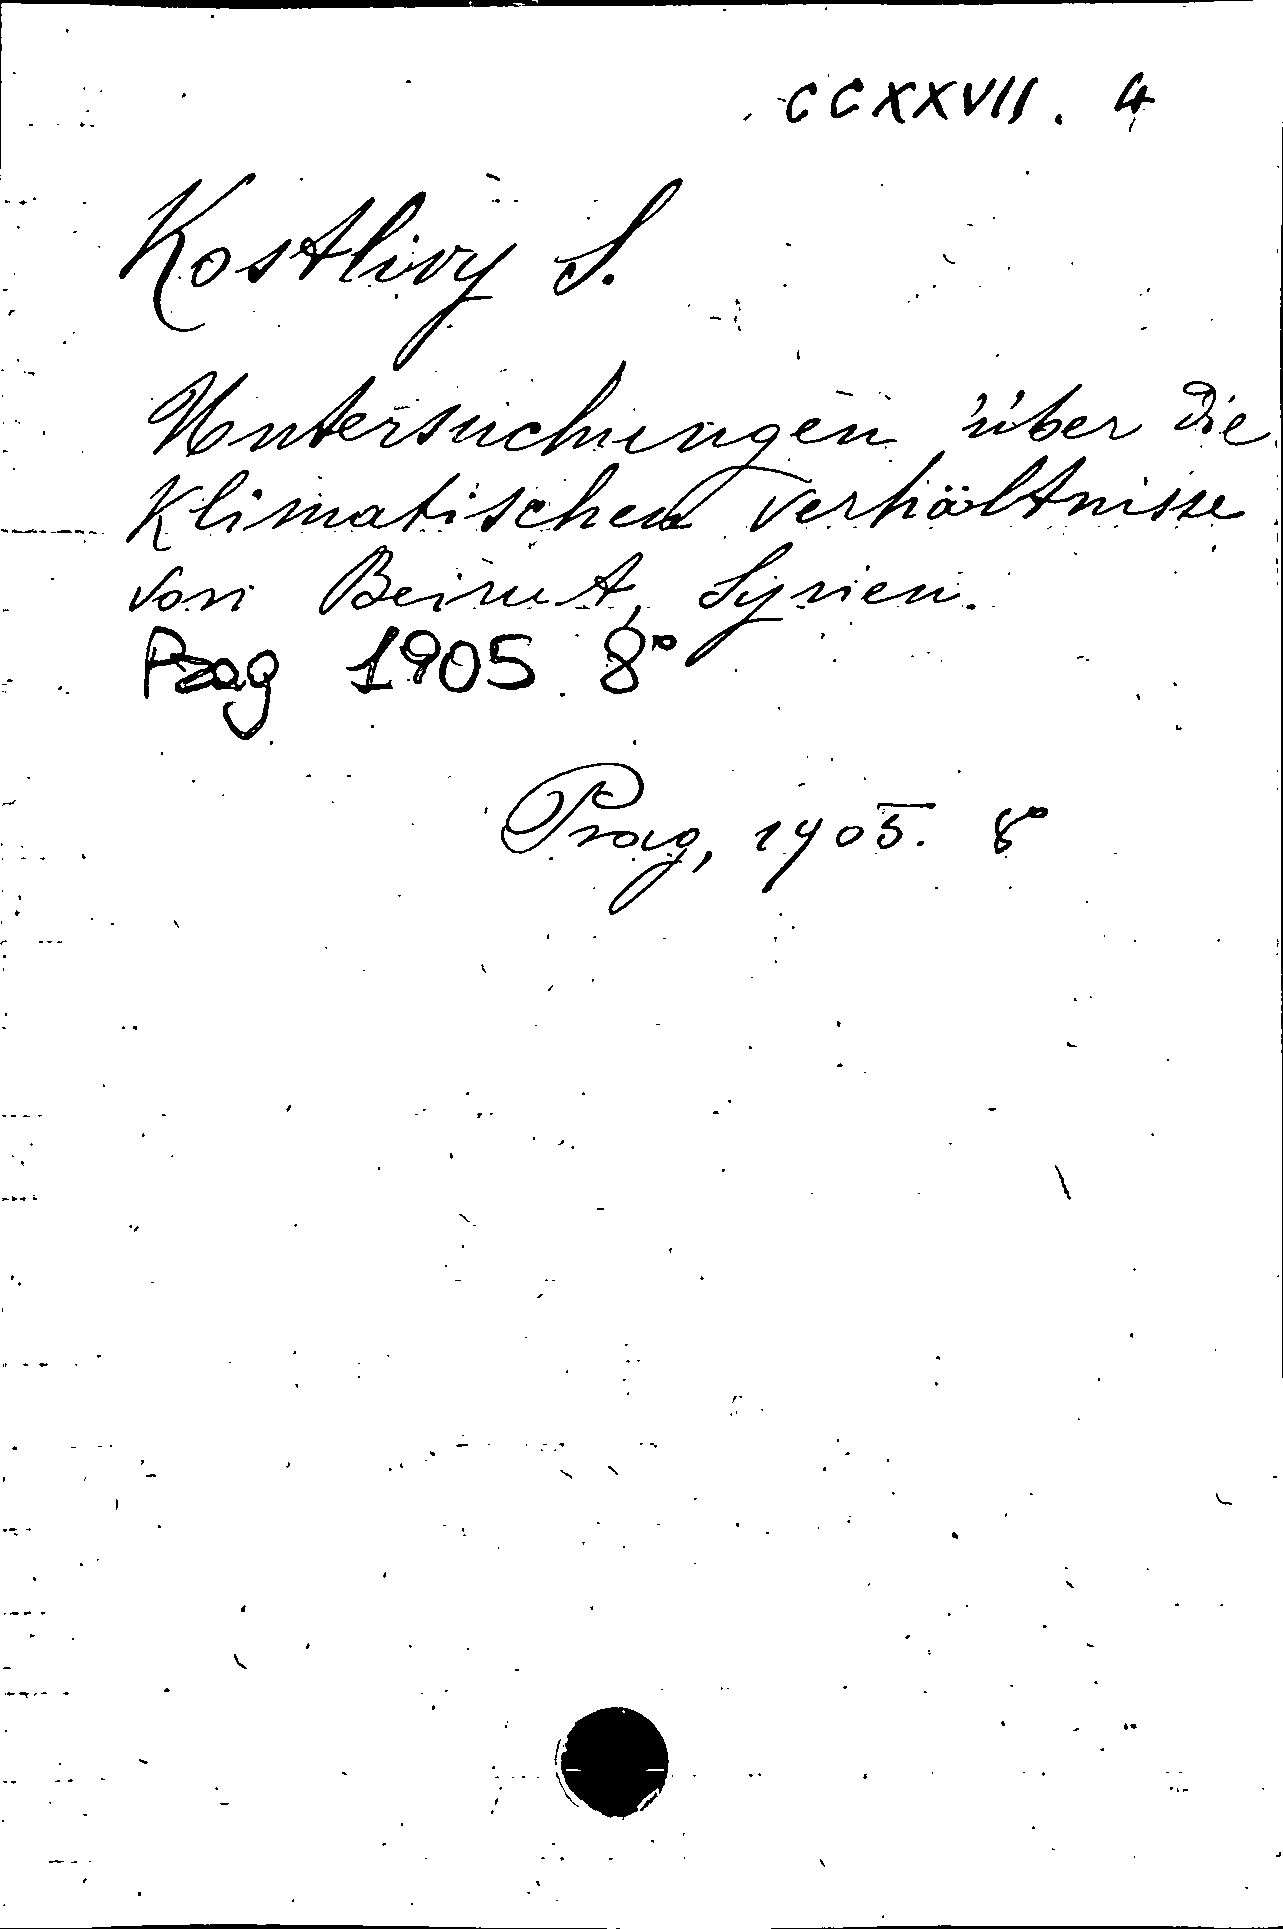 CCXXVII. 4
Kostlivy S.
Untersuchungen über die
Klimatischen Verhältnisse
von Beirut, Syrien.
Prag 1905 8°
Prag, 1905. 8°